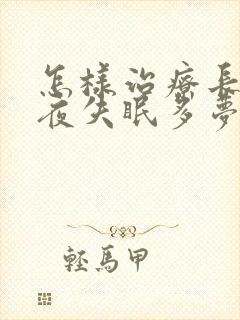 怎樣治療長
夜失眠多夢
輕馬甲